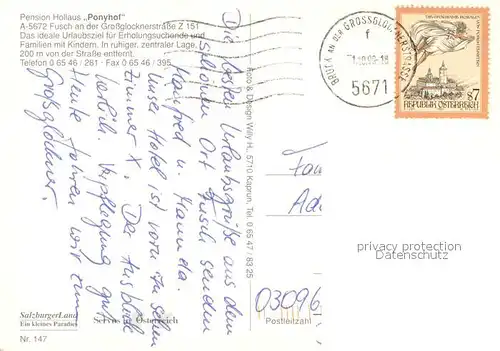 Pension Hollaus „Ponyhof“
A-5672 Fusch an der Großglocknerstraße Z 151
Das ideale Urlaubsziel für Erholungsuchende und
Familien mit Kindern. In ruhiger, zentraler Lage,
200 m von der Straße entfernt.
Telefon 0 65 46 / 281 · Fax 0 65 46 / 395
Die besten Urlaubsgrüße aus dem
schönen Ort Fusch senden
Manfred u. Hannda.
Unser Hotel ist vorn zu sehen
Zimmer X. Der Ausblick
herrlich. Verpflegung gut.
Heute fahren wir zum
Großglockner.
SalzburgerLand
Ein kleines Paradies
Service in Österreich
Nr. 147
Foto & Design Willy H., 5710 Kaprun, Tel. 0 65 47 / 83 25
BRUCK AN DER GROSSGLOCKNERSTRASSE
f
5671
REPUBLIK ÖSTERREICH
S7
Fam
Ad
privacy protection
watermark
03096
Postleitzahl